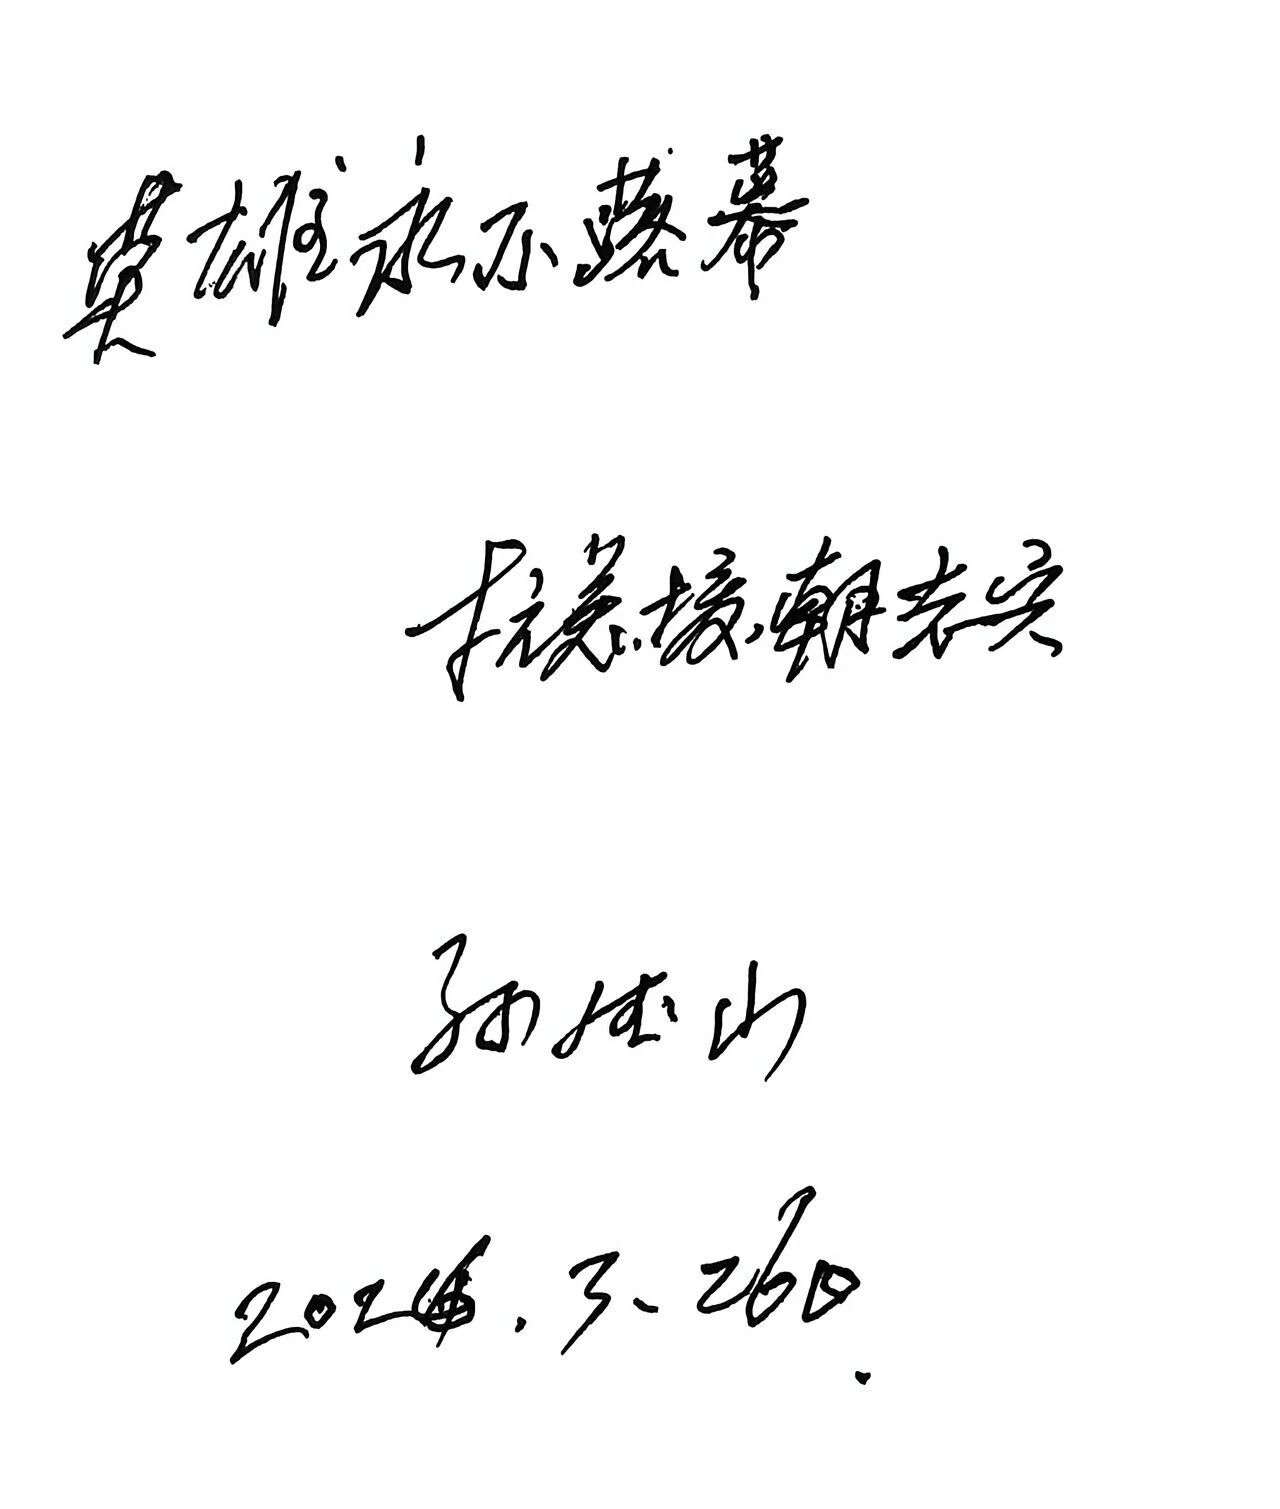 英雄永不落幕
抗美援朝老兵
孙德山
2026.3.26日